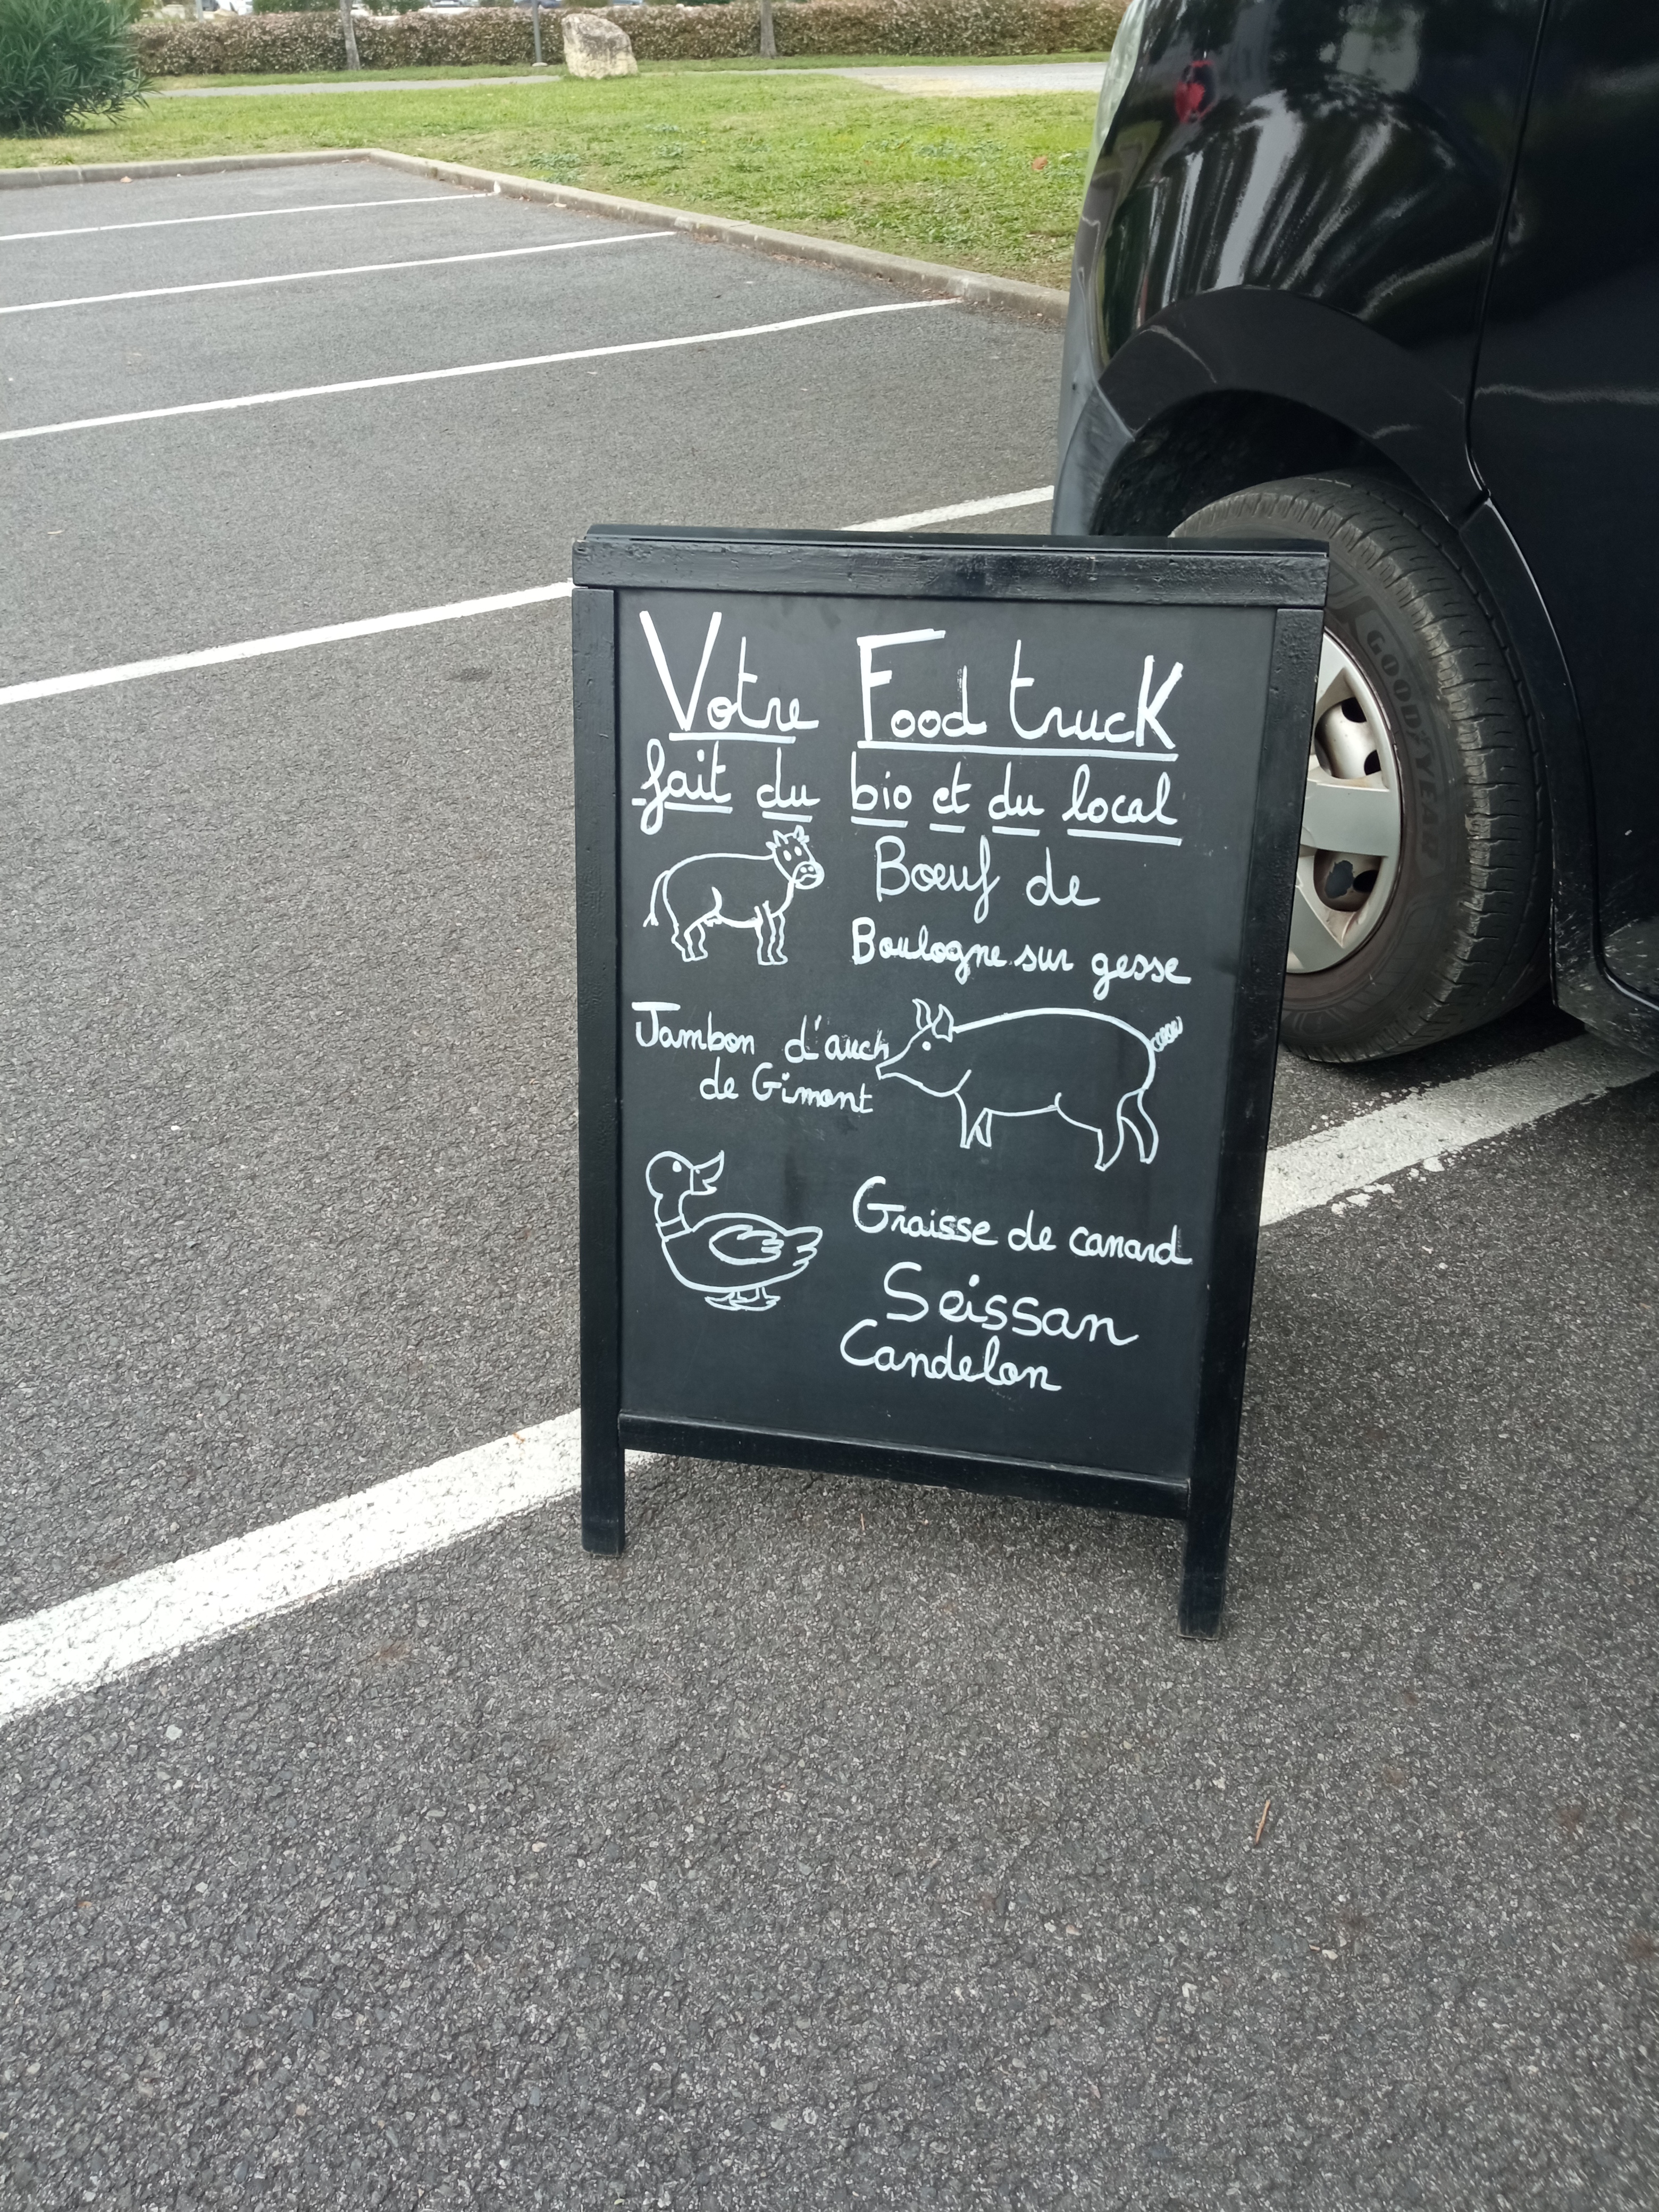 Votre Food truck
fait du bio et du local
Bœuf de
Boulogne sur gesse
Jambon d'auch
de Gimont
Graisse de canard
Seissan
Candelon
GOODYEAR